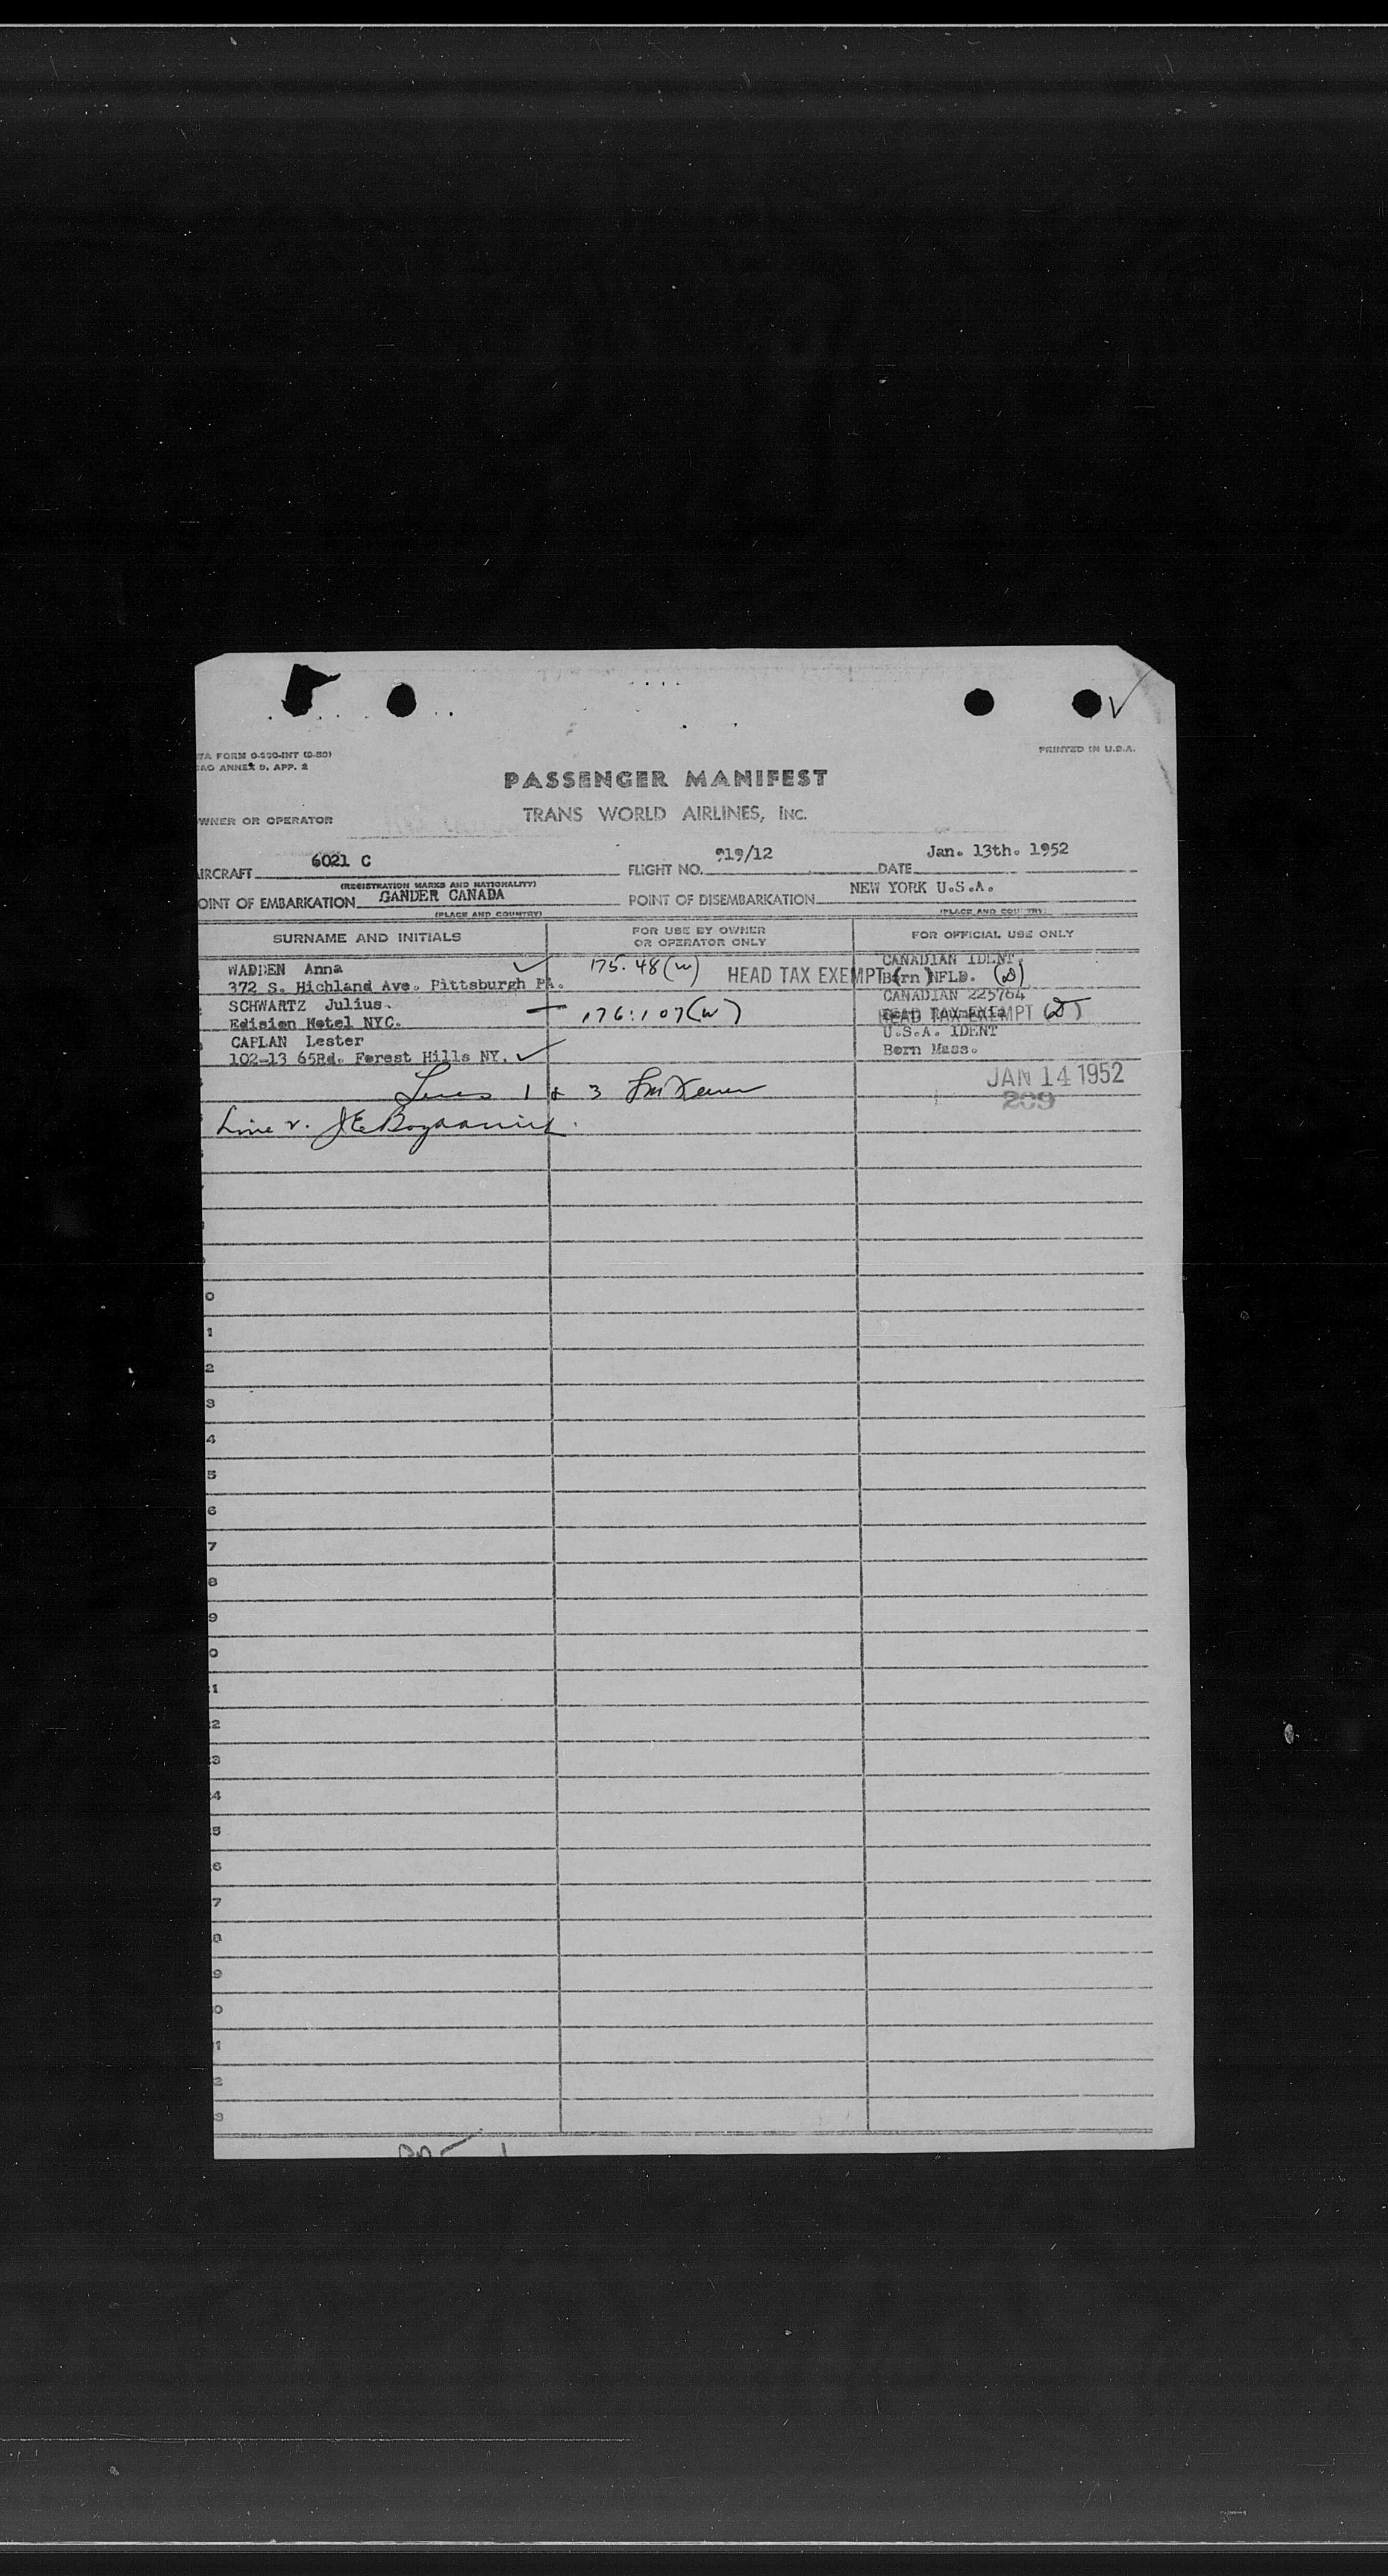 WA FORM O-250-INT (9-50)
CAO ANNEX 9, APP. 2
PRINTED IN U.S.A.
PASSENGER MANIFEST
WNER OR OPERATOR TRANS WORLD AIRLINES, INC.
IRCRAFT 6021 C FLIGHT NO. 919/12 DATE Jan. 13th. 1952
(REGISTRATION MARKS AND NATIONALITY)
OINT OF EMBARKATION GANDER CANADA POINT OF DISEMBARKATION NEW YORK U.S.A.
(PLACE AND COUNTRY) (PLACE AND COUNTRY)
SURNAME AND INITIALS FOR USE BY OWNER OR OPERATOR ONLY FOR OFFICIAL USE ONLY
WADDEN Anna 175.48(W) HEAD TAX EXEMPT ( ) CANADIAN IDENT.
372 S. Hichland Ave. Pittsburgh PA. Born NFLD. (D)
SCHWARTZ Julius. 176:107(W) CANADIAN 225764
Edision Hotel NYC. HEAD TAX EXEMPT (D)
CAPLAN Lester U.S.A. IDENT
102-13 65Rd. Forest Hills NY. Born Mass.
JAN 14 1952
209
Lines 1 & 3
Line 2.
0
1
2
3
4
5
6
7
8
9
0
1
2
3
4
5
6
7
8
9
0
1
2
3